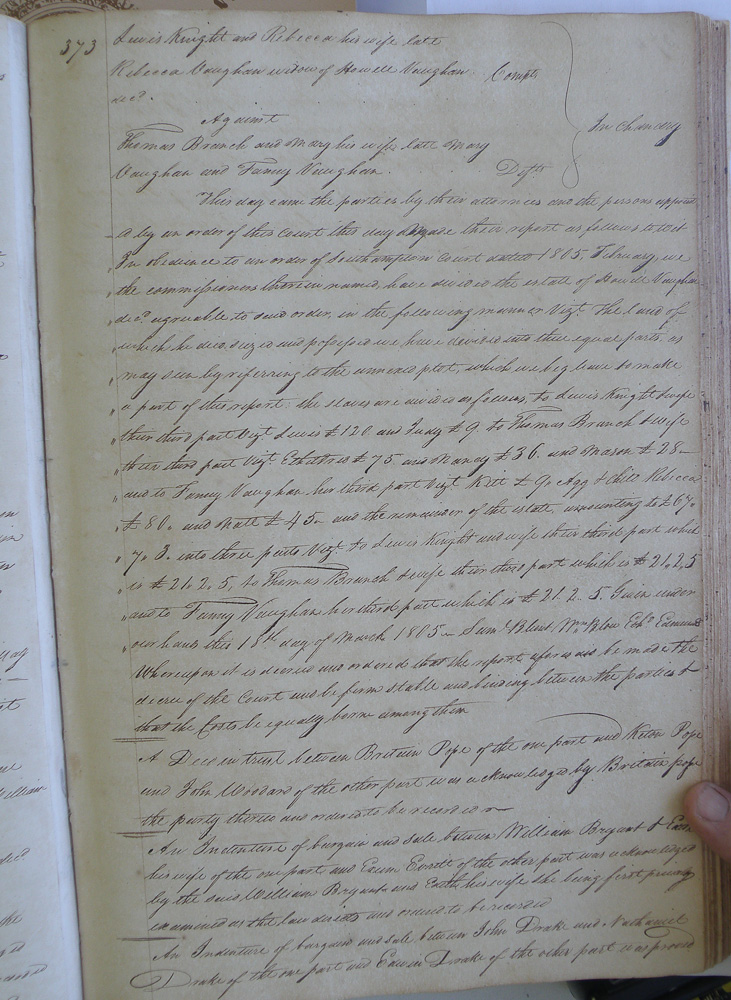 373
Lewis Knight and Rebecca his wife late
Rebecca Vaughan widow of Howell Vaughan Complts
decd.
Against
In Chancery
Thomas Branch and Mary his wife late Mary
Vaughan and Fanny Vaughan. Defts
This day came the parties by their attornies and the persons appoint
ed by an order of this Court this day made their report as follows to wit
In obedience to an order of Southampton Court dated 1805, February, we
the commissioners therein named, have divided the estate of Howell Vaughan
decd. agreable to said order, in the following manner Vizt. The land of
which he died siezed and possessed we have devided into three equal parts, as
may seen by referring to the annexed plot, which we beg leave to make
a part of this report. the slaves are divided as follows, to Lewis Knight & wife
their third part Vizt. Lewis £120 and Judy £9. to Thomas Branch & wife
their third part Vizt. £75 and Mandy £36. and Mason £28.
and to Fanny Vaughan her third part Vizt. Kitt £9. Agg & Child Rebecca
£80. and Matt £45. and the remainder of the estate, amounting to £67.
7. 3. into three parts Vizt. to Lewis Knight and wife their third part which
is £21.2.5, to Thomas Branch & wife their third part which is £21.2.5
and to Fanny Vaughan her third part which is £21.2.5. Given under
our hands this 18th day of March 1805 Saml. Blunt Wm Blow Edwd. Edmunds
Whereupon it is decreed and ordered that the report aforesaid be made the
decree of the Court and be firm & stable and binding between the parties &
that the Costs be equally borne among them
A Deed in trust between Britain Pope of the one part and Pope
and John Woodard of the other part was acknowledged by Britain pope
the party thereto and ordered to be recorded
An Indenture of bargain and sale between William Bryant &
his wife of the one part and of the other part was acknowledged
by the said William Bryant and his wife she being first privily
examined as the law directs and ordered to be recorded
An Indenture of bargain and sale between John Drake and Nathaniel
Drake of the one part and Edwin Drake of the other part was proved